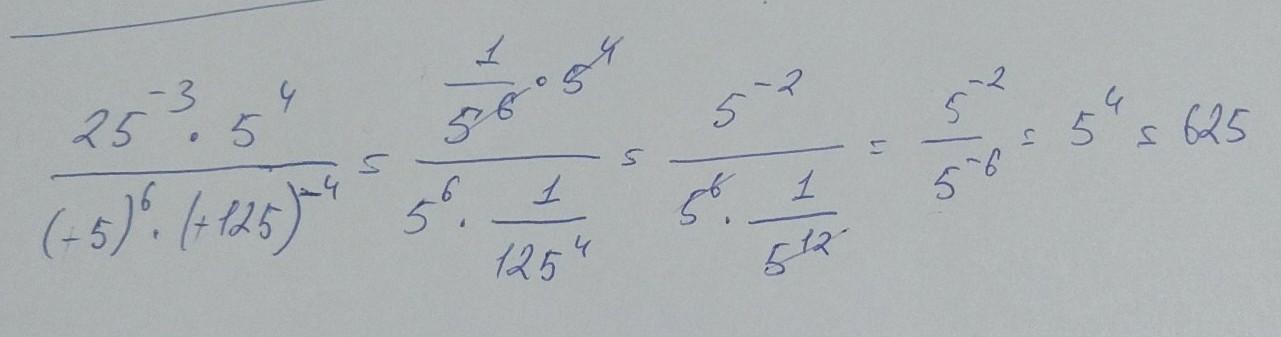 \frac{25^{-3} \cdot 5^{4}}{(-5)^{6} \cdot (-125)^{-4}} = \frac{\frac{1}{5^{6}} \cdot 5^{4}}{5^{6} \cdot \frac{1}{125^{4}}} = \frac{5^{-2}}{5^{6} \cdot \frac{1}{5^{12}}} = \frac{5^{-2}}{5^{-6}} = 5^{4} = 625